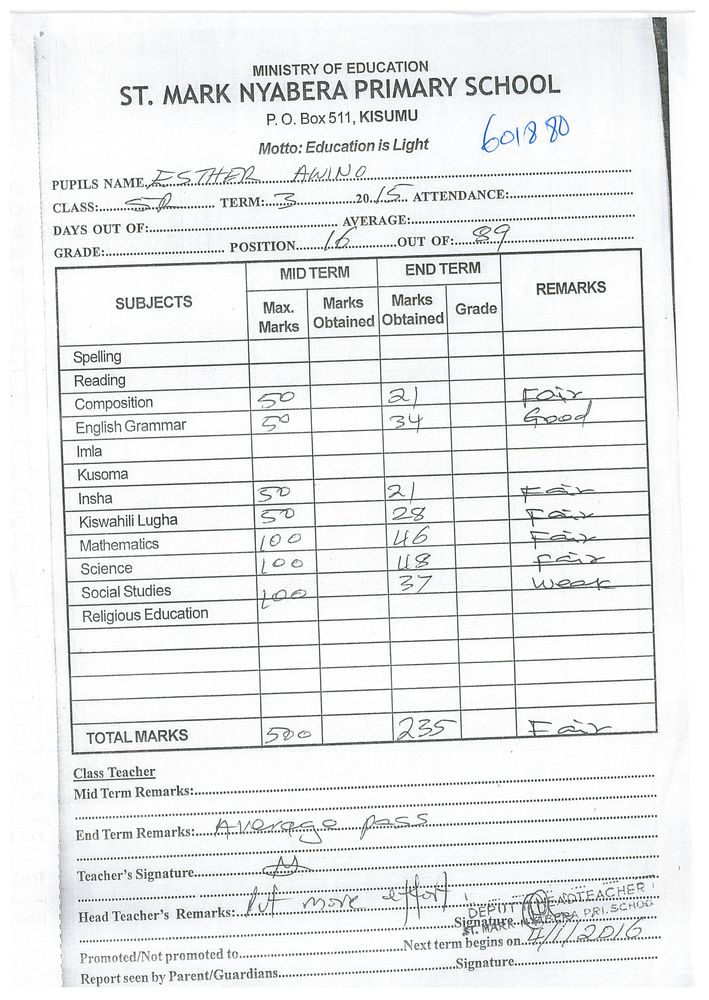 MINISTRY OF EDUCATION
ST. MARK NYABERA PRIMARY SCHOOL
P. O. Box 511, KISUMU
Motto: Education is Light
601880
PUPILS NAME, ESTHER AWINO
CLASS: 5R TERM: 3 2015 ATTENDANCE:
DAYS OUT OF: AVERAGE:
GRADE: POSITION 16 OUT OF: 89
SUBJECTS MID TERM END TERM REMARKS
Max. Marks Marks Obtained Marks Obtained Grade
Spelling
Reading
Composition 50 21 Fair
English Grammar 50 34 Good
Imla
Kusoma
Insha 50 21 Fair
Kiswahili Lugha 50 28 Fair
Mathematics 100 46 Fair
Science 100 48 Fair
Social Studies 100 37 Week
Religious Education
TOTAL MARKS 500 235 Fair
Class Teacher
Mid Term Remarks:
End Term Remarks: Average pass
Teacher's Signature
Head Teacher's Remarks: Put more effort
DEPUTY HEADTEACHER
Signature
ST. MARK NYABERA PRI. SCHOOL
Promoted/Not promoted to Next term begins on 4/1/2016
Report seen by Parent/Guardians Signature